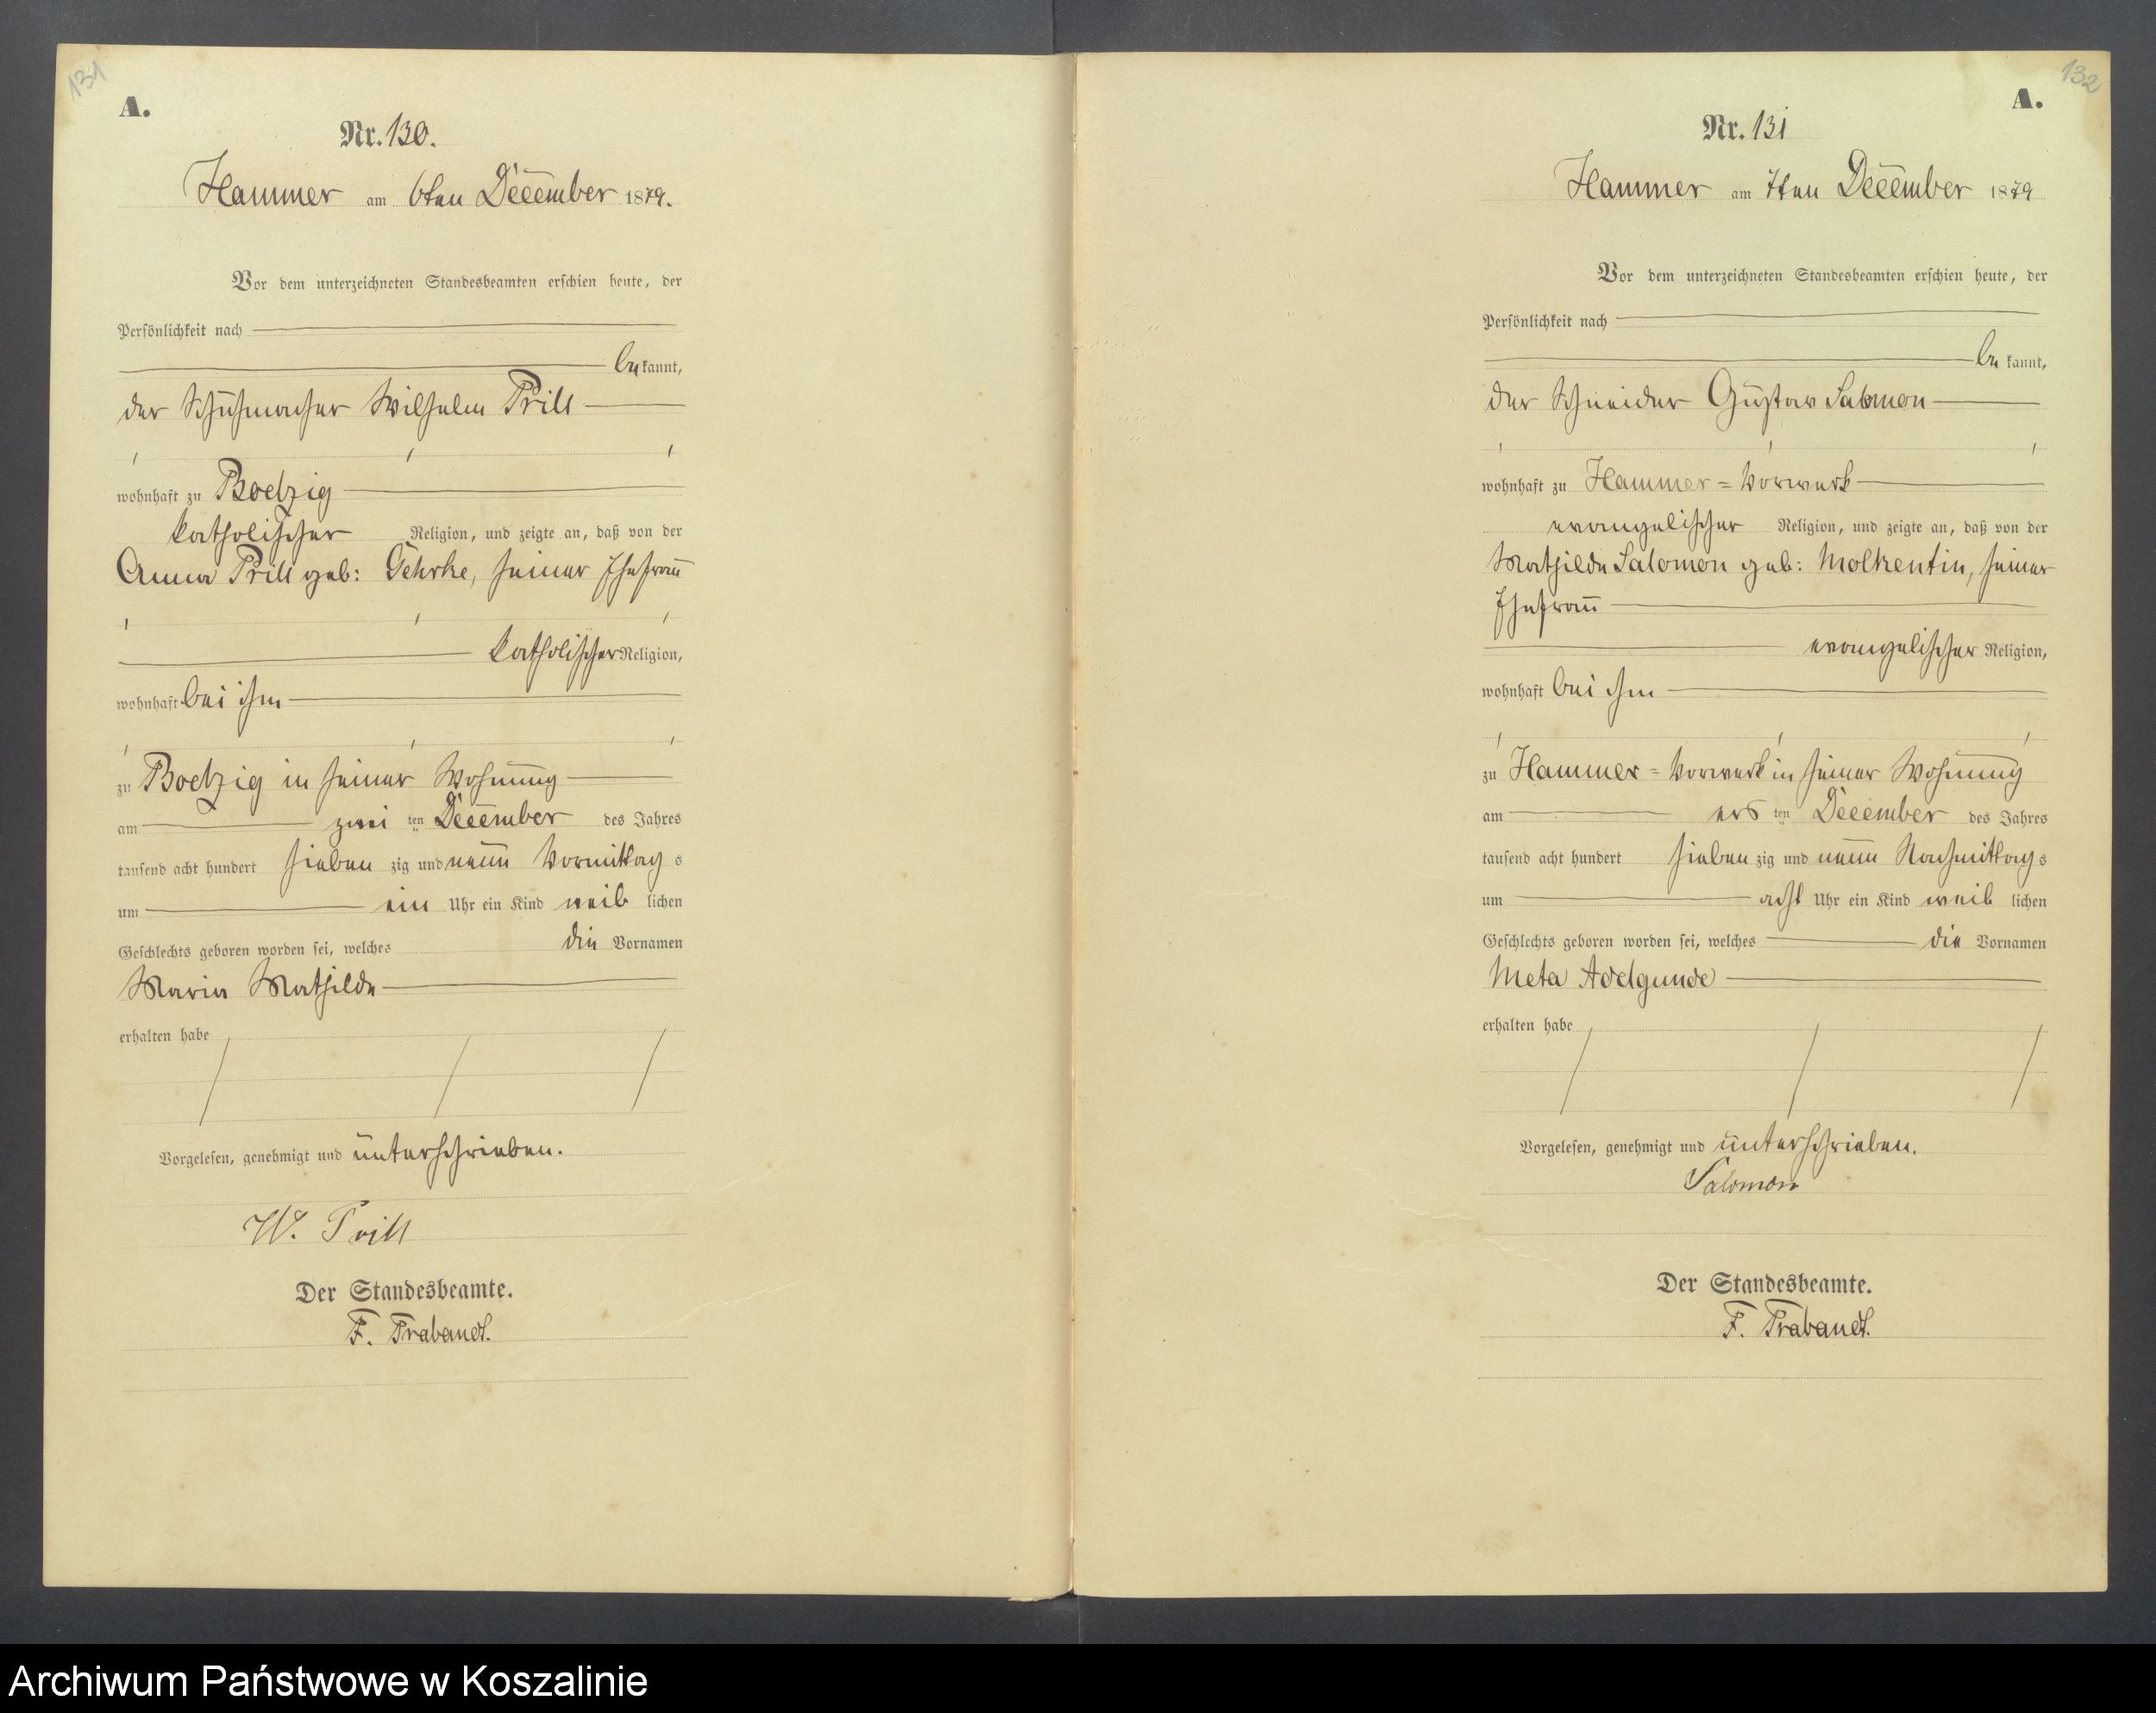 131
A.
Nr. 130.
Hammer am 6ten December 1879.
Vor dem unterzeichneten Standesbeamten erschien heute, der
Persönlichkeit nach
be kannt,
der Schuhmacher Wilhelm Prill
wohnhaft zu Boetzig
katholischer Religion, und zeigte an, daß von der
Anna Prill geb: Gehrke, seiner Ehefrau
katholischer Religion,
wohnhaft bei ihm
zu Boetzig in seiner Wohnung
am zwei ten December des Jahres
tausend acht hundert sieben zig und neun Vormittag s
um ein Uhr ein Kind weib lichen
Geschlechts geboren worden sei, welches die Vornamen
Maria Mathilde
erhalten habe
Vorgelesen, genehmigt und unterschrieben.
W. Prill
Der Standesbeamte.
F. Trabandt.
132
A.
Nr. 131
Hammer am 7ten December 1879
Vor dem unterzeichneten Standesbeamten erschien heute, der
Persönlichkeit nach
be kannt,
der Schneider Gustav Salomon
wohnhaft zu Hammer=Vorwerk
evangelischer Religion, und zeigte an, daß von der
Mathilde Salomon geb: Molkentin, seiner
Ehefrau
evangelischer Religion,
wohnhaft bei ihm
zu Hammer=Vorwerk in seiner Wohnung
am ers ten December des Jahres
tausend acht hundert sieben zig und neun Nachmittag s
um acht Uhr ein Kind weib lichen
Geschlechts geboren worden sei, welches die Vornamen
Meta Adelgunde
erhalten habe
Vorgelesen, genehmigt und unterschrieben.
Salomon
Der Standesbeamte.
F. Trabandt.
Archiwum Państwowe w Koszalinie